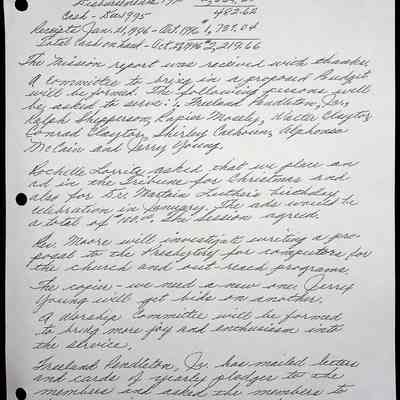 Disbursements 199
Cash - Dec 1995 482.62
Receipts Jan. 21, 1996 - Oct. 1996 $1,737.04
Total Cash on hand - Oct. 28, 1996 $2,219.66
The Mission report was received with thanks.
A committee to bring in a proposed Budget
will be formed. The following persons will
be asked to serve: Freeland Pendleton, Jr.,
Ralph Shipperson, Rapier Mosely, Walter Clayton,
Conrad Clayton, Shirley Calhoun, Alphonso
McCain and Jerry Young.
Rochelle Lorritz asked that we place an
ad in the Tribune for Christmas and
also for Dr. Martin Luther's birthday
celebration in January. The ads would be
a total of $100.00. The Session agreed.
Rev. Moore will investigate writing a pro-
posal to the Presbytery for computers for
the church and out-reach programs.
The copier - we need a new one. Jerry
Young will get bids on another.
A Worship Committee will be formed
to bring more joy and enthusiasm into
the service.
Freeland Pendleton, Jr. has mailed letters
and cards of yearly pledges to the
members and asked the members to